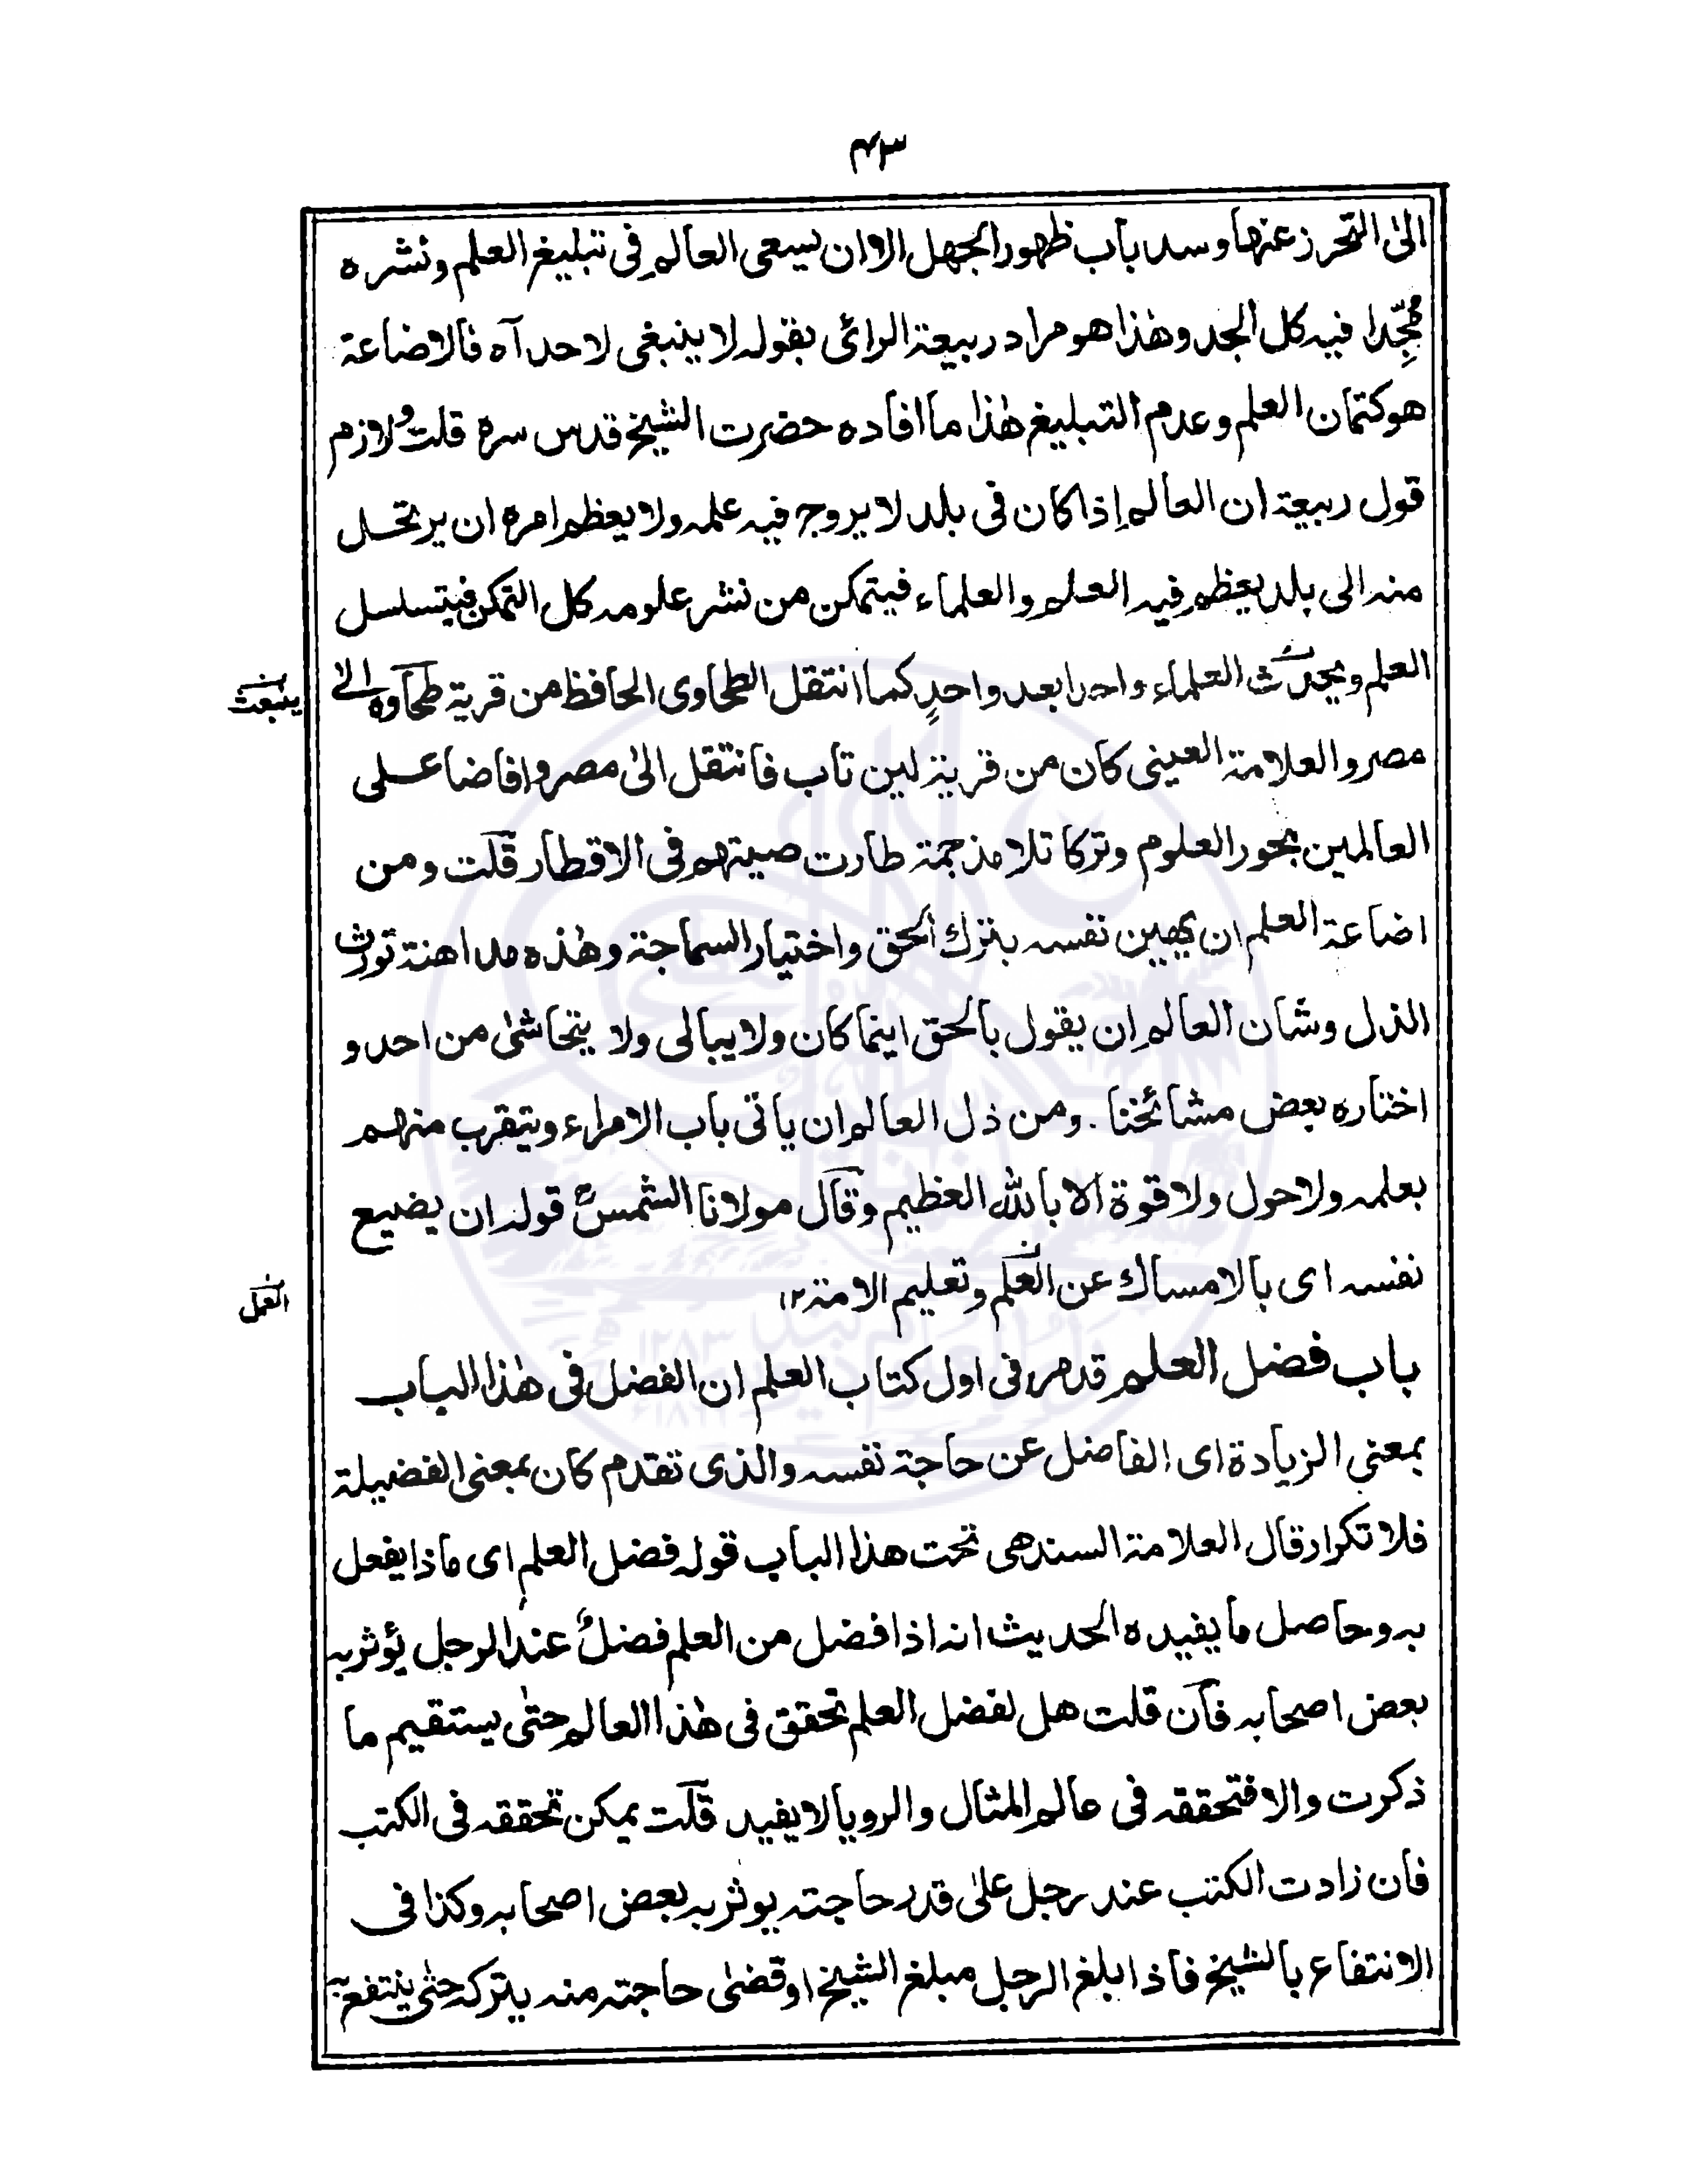 ٤٣
الیٰ التحرز عنها وسد باب ظهور الجهل الا ان یسعی العالم فی تبلیغ العلم ونشره
مُجِدّا فیه کل الجد وهٰذا هو مراد ربیعة الرائی بقوله لا ینبغی لاحد آه فالاضاعة
هو کتمان العلم وعدم التبلیغ هٰذا ما افاده حضرت الشیخ قدس سره قلت ولازم
قول ربیعة ان العالم إذا کان فی بلد لا یروج فیه علمه ولا یعظم امره ان یرتحل
منه الی بلد یعظم فیه العلم والعلماء فیتمکن من نشر علومه کل التمکن فیتسلسل
العلم ویحدث العلماء واحدا بعد واحدٍ کما انتقل الطحاوی الحافظ من قریة طحاوه الی
ینبعث
مصر والعلامة العینی کان من قریة لین تاب فانتقل الیٰ مصر وافاضا علی
العالمین بحور العلوم وترکا تلامذ جمة طارت صیتهم فی الاقطار قلت ومن
اضاعة العلم ان یهین نفسه بترك الحق واختیار السماجة وهٰذه مداهنة تورث
الذل وشان العالم ان یقول بالحق اینما کان ولا یبالی ولا یتحاشیٰ من احد و
اختاره بعض مشائخنا . ومن ذل العالم ان یاتی باب الامراء ویتقرب منهم
بعلمه ولا حول ولا قوة الا بالله العظیم وقال مولانا الشمسؒ قوله ان یضیع
نفسه ای بالامساك عن العلم وتعلیم الامة ١٢
العمل
باب فضل العلم قد مر فی اول کتاب العلم ان الفضل فی هٰذا الباب
بمعنی الزیادة ای الفاضل عن حاجة نفسه والذی تقدم کان بمعنی الفضیلة
فلا تکرار قال العلامة السندهی تحت هذا الباب قوله فضل العلم ای ماذا یفعل
به وحاصل ما یفیده الحدیث انه اذا فضل من العلم فضلٌ عند الرجل یؤثر به
بعض اصحابه فان قلت هل لفضل العلم تحقق فی هٰذا العالم حتیٰ یستقیم ما
ذکرت والا فتحققه فی عالم المثال والرویا لا یفید قلت یمکن تحققه فی الکتب
فان زادت الکتب عند رجل علیٰ قدر حاجته یوثر به بعض اصحابه وکذا فی
الانتفاع بالشیخ فاذا بلغ الرجل مبلغ الشیخ او قضیٰ حاجته منه یترکه حتیٰ ینتفع به